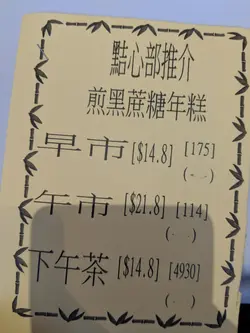 點心部推介
煎黑蔗糖年糕
早市 [$14.8] [175]
午市 [$21.8] [114]
下午茶 [$14.8] [4930]